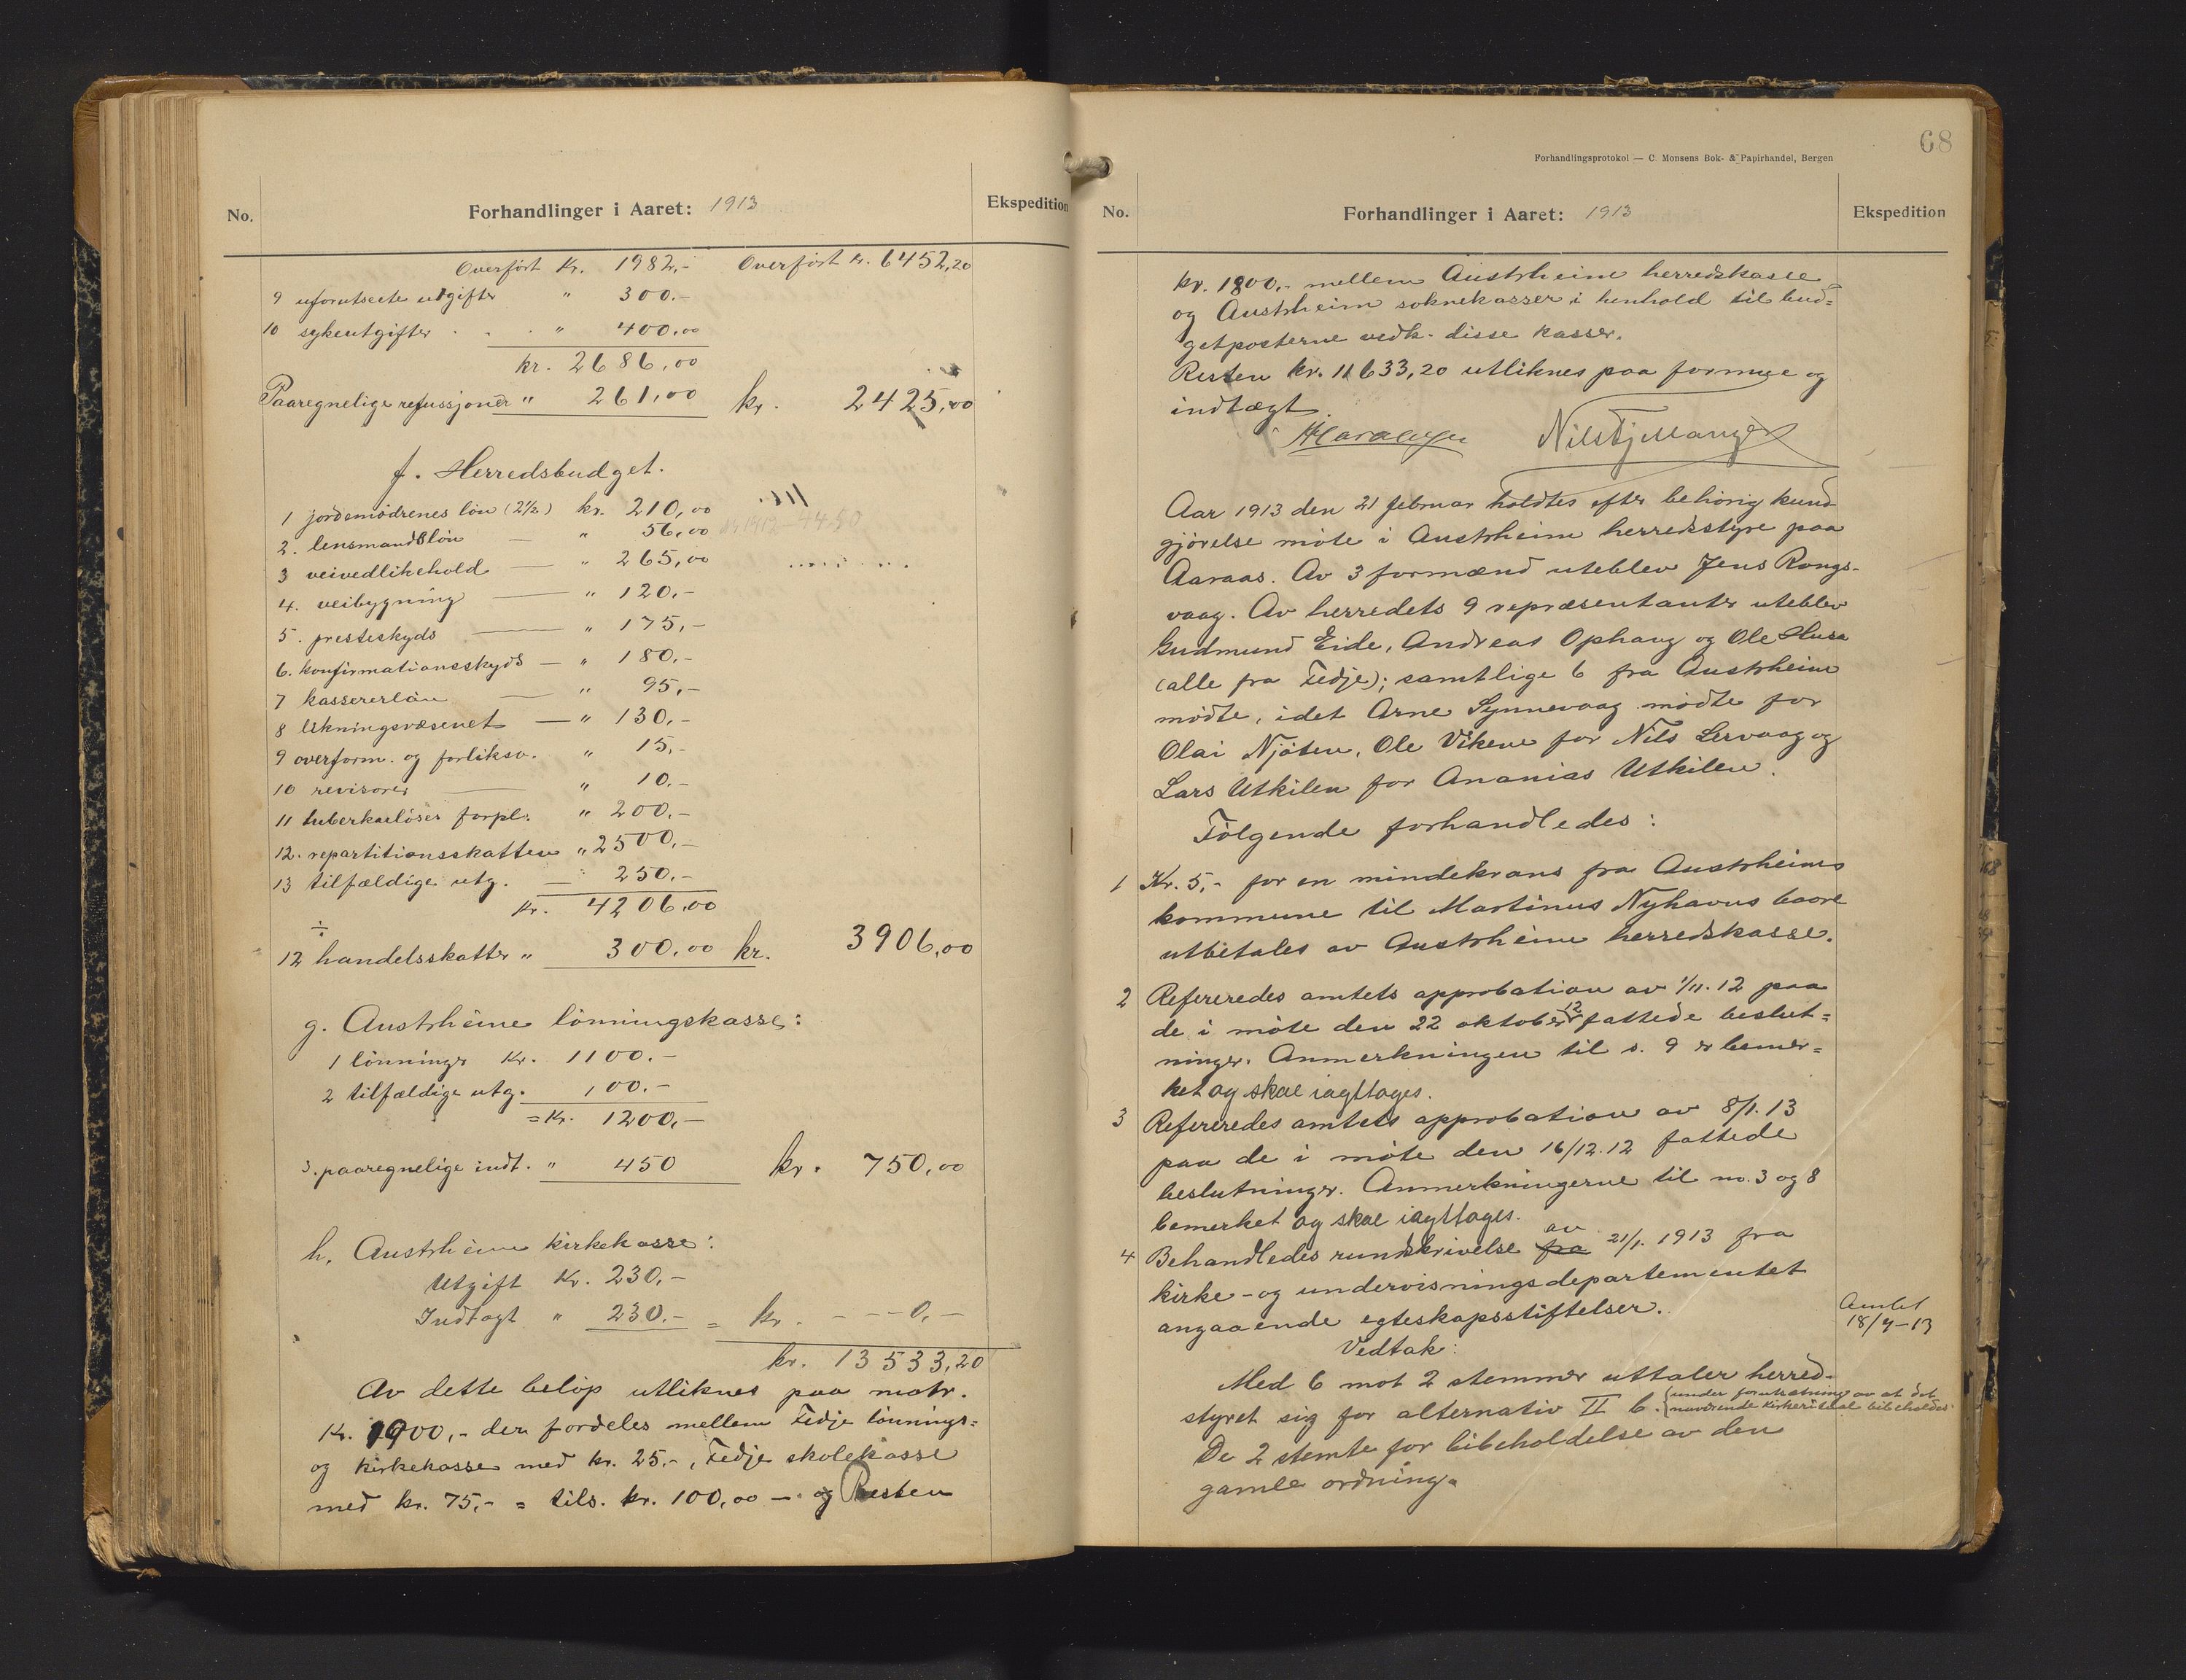 No.
Forhandlinger i Aaret: 1913
Ekspedition
Overført Kr. 1982,- Overført kr. 6452,20
9 uforutseete utgifter " 300.-
10 sykeutgifter " 400.00
kr. 2686,00
Paaregnelige refussjoner " 261,00 kr. 2425,00
f. Herredsbudget.
1 jordemødrenes løn (2½) kr. 210,00
2. lensmandsløn — " 56,00
3 veivedlikehold — " 265,00
4. veibygning — " 120.-
5. presteskyds — " 175,-
6. konfirmationsskyds — " 180.-
7 kassererløn — " 95,-
8 likningsvæsenet — " 130.-
9 overform. og forliksv. " 15,-
10 revisorer — " 10.-
11 tuberkuløses forpl. " 200.-
12. repartitionsskatten " 2500,-
13 tilfældige utg. — 250.-
Kr. 4206,00
÷
12 handelsskatter " 300,00 kr. 3906,00
g. Austrheim lønningskasse:
1 lønninger Kr. 1100.-
2 tilfældige utg. 100.-
= Kr. 1200,-
3. paaregnelige indt. " 450 kr. 750,00
h. Austrheim kirkekasse:
Utgift Kr. 230,-
Indtægt " 230.- = kr. - - - 0,-
kr. 13533,20
Av dette beløp utliknes paa matr.
Kr. 1900,- der fordeles mellem Fedje lønnings=
og kirkekasse med kr. 25.-, Fedje skolekasse
med kr. 75,- = tils. kr. 100,00 — og Resten
68
Forhandlingsprotokol — C. Monsens Bok- & Papirhandel, Bergen
No.
Forhandlinger i Aaret: 1913
Ekspedition
kr. 1800.- mellem Austrheim herredskasse
og Austrheim soknekasser i henhold til bud=
getposterne vedk. disse kasser.
Resten kr. 11633,20 utliknes paa formue og
indtægt.
Nils Fjellanger
Aar 1913 den 21 februar holdtes efter behørig kund
gjørelse møte i Austrheim herredsstyre paa
Aaraas. Av 3 formænd uteblev Jens Rongs-
vaag. Av herredets 9 repræsentanter uteblev
Gudmund Eide, Andreas Ophaug og Ole Husa
(alle fra Fedje); samtlige 6 fra Austrheim
mødte, idet Arne Synnevaag mødte for
Olai Njøten, Ole Vikene for Nils Lervaag og
Lars Utkilen for Ananias Utkilen.
Følgende forhandledes:
1 Kr. 5,- for en mindekrans fra Austrheims
kommune til Martinus Nyhavns baare
utbetales av Austrheim herredskasse.
2 Refereredes amtets approbation av 1/11. 12 paa
de i møte den 22 oktober 12 fattede beslut=
ninger. Anmerkningen til s. 9 er bemer=
ket og skal iagttages.
3 Refereredes amtets approbation av 8/1. 13
paa de i møte den 16/12. 12 fattede
beslutninger. Anmerkningerne til no. 3 og 8
bemerket og skal iagttages.
4 Behandledes rundskrivelse fra av 21/1. 1913 fra
kirke- og undervisningsdepartementet
angaaende egteskapsstiftelser.
Amtet
18/4-13
Vedtak:
Med 6 mot 2 stemmer uttaler herred-
styret sig for alternativ II b. (under forutsætning av at det
nuværende kirkeritual bibeholdes
De 2 stemte for bibeholdelse av den
gamle ordning.